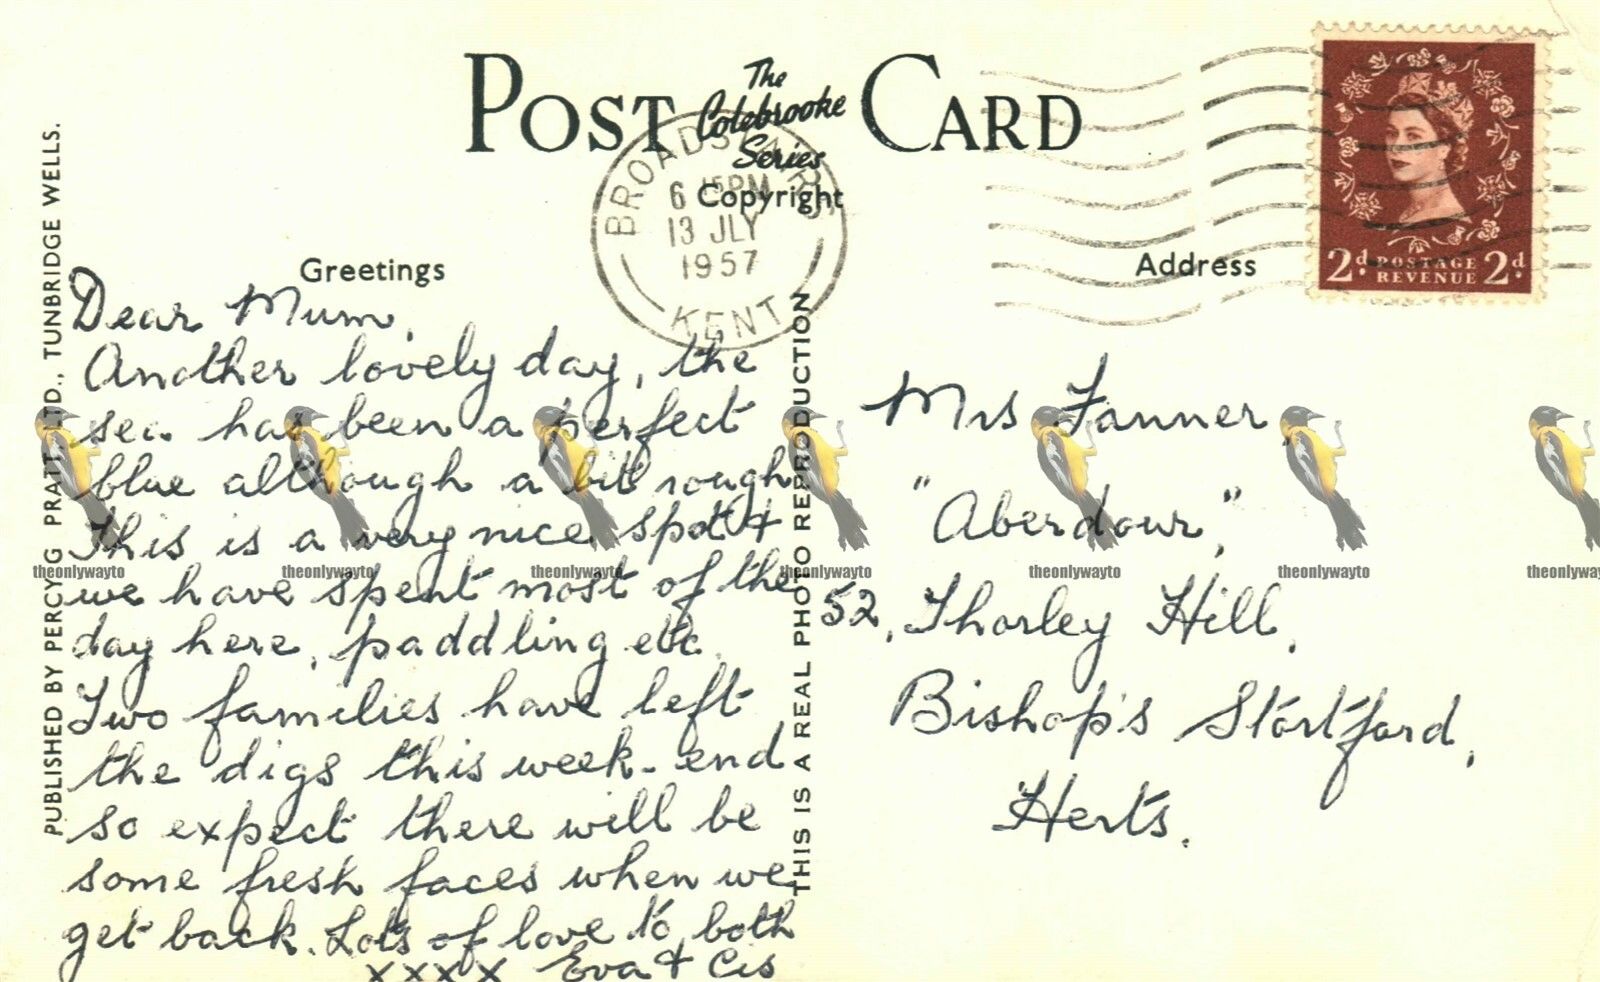 POST CARD
The
Colebrooke
Series
Copyright
BROADSTAIRS
6 15PM
13 JLY
1957
KENT
2d. POSTAGE REVENUE 2d.
Greetings
Address
PUBLISHED BY PERCY G PRATT LTD., TUNBRIDGE WELLS.
THIS IS A REAL PHOTO REPRODUCTION
Dear Mum,
Another lovely day, the
sea has been a perfect
blue although a bit rough
This is a very nice spot &
we have spent most of the
day here, paddling etc.
Two families have left
the digs this week-end
so expect there will be
some fresh faces when we
get back. Lots of love to both
xxxx Eva & Cis
Mrs Fanner,
"Aberdour",
52, Thorley Hill,
Bishop's Stortford,
Herts.
theonlywayto theonlywayto theonlywayto theonlywayto theonlywayto theonlywayto theonlyway